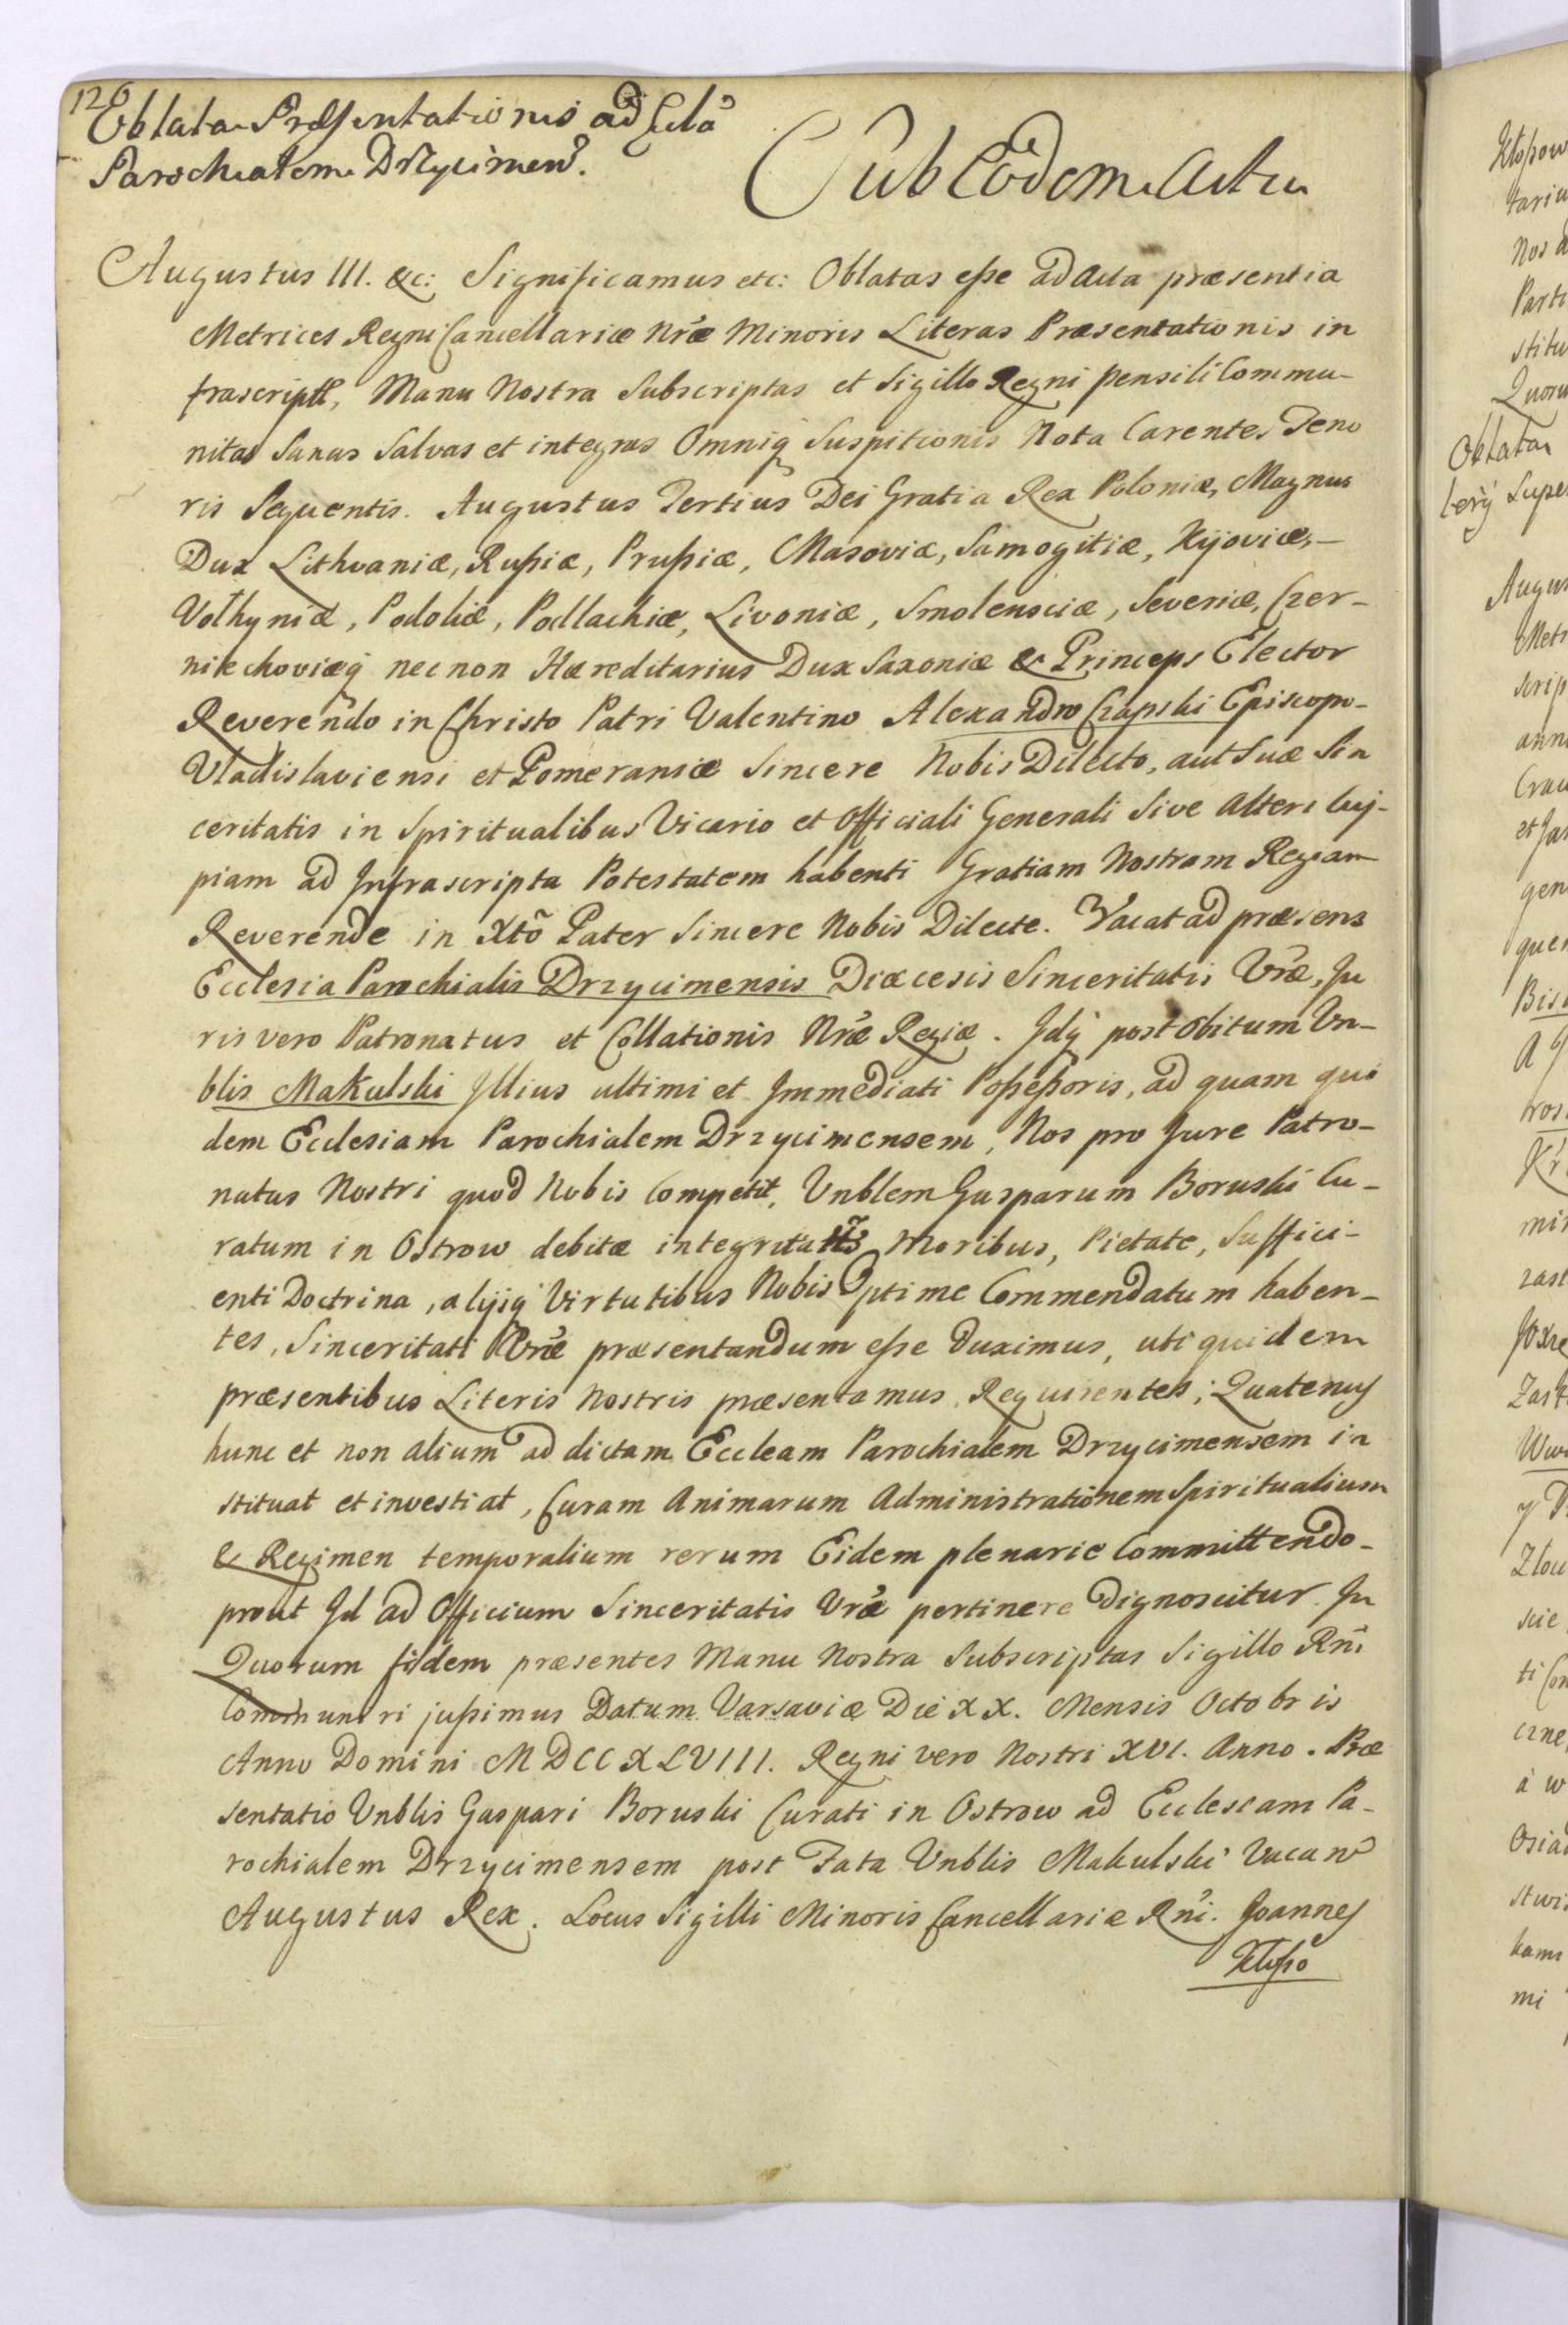 126
Oblata Præsentationis ad Ecclã
Parochialem Drzycimen̄.
Sub Eodem Actu
Augustus III. &c: Significamus etc: Oblatas eſse ad Acta præsentia
Metrices Regni Cancellariæ Nr̃æ Minoris Literas Præsentationis in
frascript, Manu Nostra Subscriptas et Sigillo Regni pensili Commu-
nitas Sanas Salvas et integras Omniq̃ Suspitionis Nota Carentes Teno
ris Sequentis. Augustus Tertius Dei Gratia Rex Poloniæ, Magnus
Dux Lithvaniæ, Ruſsiæ, Pruſsiæ, Masoviæ, Samogitiæ, Kijoviæ, -
Volhyniæ, Podoliæ, Podlachiæ, Livoniæ, Smolensciæ, Severiæ, Czer-
niechoviæq̃ nec non Hæreditarius Dux Saxoniæ & Princeps Elector
Reverendo in Christo Patri Valentino Alexandro Czapski Episcopo-
Vladislaviensi et Pomeraniæ Sincere Nobis Dilecto, aut Suæ Sin
ceritatis in Spiritualibus Vicario et Officiali Generali Sive Alteri Cuj-
piam ad Infrascripta Potestatem habenti Gratiam Nostram Regiam
Reverende in Xtõ Pater Sincere Nobis Dilecte. Vacat ad præsens
Ecclesia Parochialis Drzycimensis Diæcesis Sinceritatis Vr̃æ, Ju
ris vero Patronatus et Collationis Nr̃æ Regiæ. Jdq̃ post Obitum Vn-
blis Makulski Jllius ultimi et Jmmediati Poſseſsoris, ad quam qui
dem Ecclesiam Parochialem Drzycimensem, Nos pro Jure Patro-
natus Nostri quod Nobis Competit, Vnblem Gasparum Boruski Cu-
ratum in Ostrow debitæ integritatis Moribus, Pietate, Suffici-
enti Doctrina, alijsq̃ Virtutibus Nobis Optime Commendatum haben-
tes, Sinceritati Vr̃æ præsentandum eſse Duximus, uti quidem
præsentibus Literis Nostris præsentamus, Requirentes; Quatenus
hunc et non alium ad dictam Eccleam Parochialem Drzycimensem in
stituat et investiat, Curam Animarum Administrationem Spiritualium
& Regimen temporalium rerum Eidem plenarie Committendo-
prout Jd ad Officium Sinceritatis Vr̃æ pertinere Dignoscitur. Jn
Quorum fidem præsentes Manu Nostra Subscriptas Sigillo Rñi
Communiri juſsimus Datum Varsaviæ Die XX. Mensis Octobris
Anno Domini MDCCXLVIII. Regni vero Nostri XVI. Anno. Præ
sentatio Vnblis Gaspari Boruski Curati in Ostrow ad Ecclesiam Pa-
rochialem Drzycimensem post Fata Vnblis Makulski Vacan̄
Augustus Rex. Locus Sigilli Minoris Cancellariæ Rñi. Joannes
Kłoſso